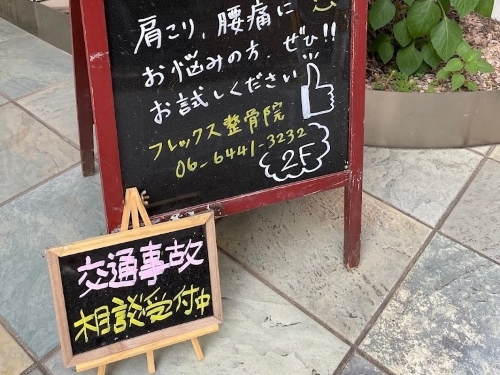 肩こり、腰痛に
お悩みの方、ぜひ!!
お試しください
フレックス整骨院
06-6441-3232
2F
交通事故
相談受付中